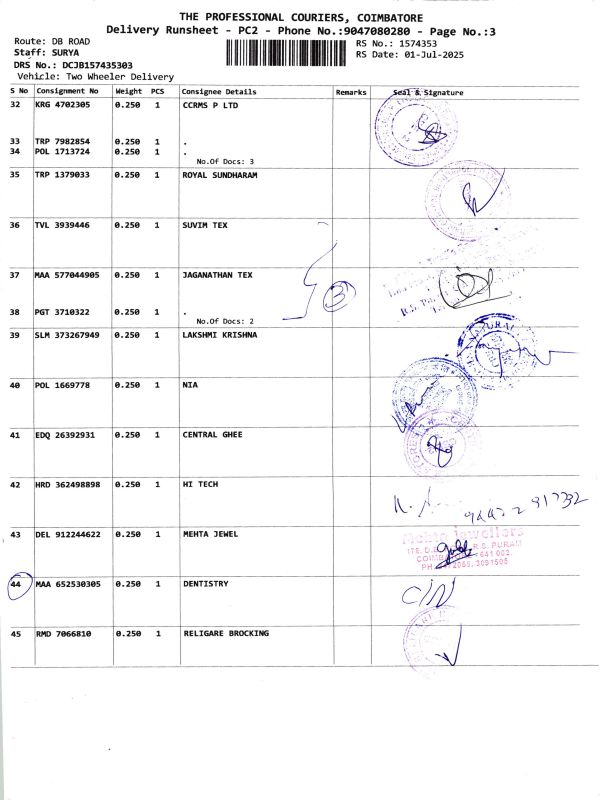 THE PROFESSIONAL COURIERS, COIMBATORE
Delivery Runsheet - PC2 - Phone No.:9047080280 - Page No.:3
Route: DB ROAD
Staff: SURYA
DRS No.: DCJB157435303
Vehicle: Two Wheeler Delivery
RS No.: 1574353
RS Date: 01-Jul-2025
S No Consignment No Weight PCS Consignee Details Remarks Seal & Signature
32 KRG 4702305 0.250 1 CCRMS P LTD
33 TRP 7982854 0.250 1 .
34 POL 1713724 0.250 1 .
No.Of Docs: 3
35 TRP 1379033 0.250 1 ROYAL SUNDHARAM
36 TVL 3939446 0.250 1 SUVIM TEX
37 MAA 577044905 0.250 1 JAGANATHAN TEX
3
38 PGT 3710322 0.250 1 .
No.Of Docs: 2
39 SLM 373267949 0.250 1 LAKSHMI KRISHNA
40 POL 1669778 0.250 1 NIA
41 EDQ 26392931 0.250 1 CENTRAL GHEE
42 HRD 362498898 0.250 1 HI TECH
43 DEL 912244622 0.250 1 MEHTA JEWEL
Mehta Jewellers
R.S. PURAM
641 002.
3091505
44 MAA 652530305 0.250 1 DENTISTRY
45 RMD 7066810 0.250 1 RELIGARE BROCKING